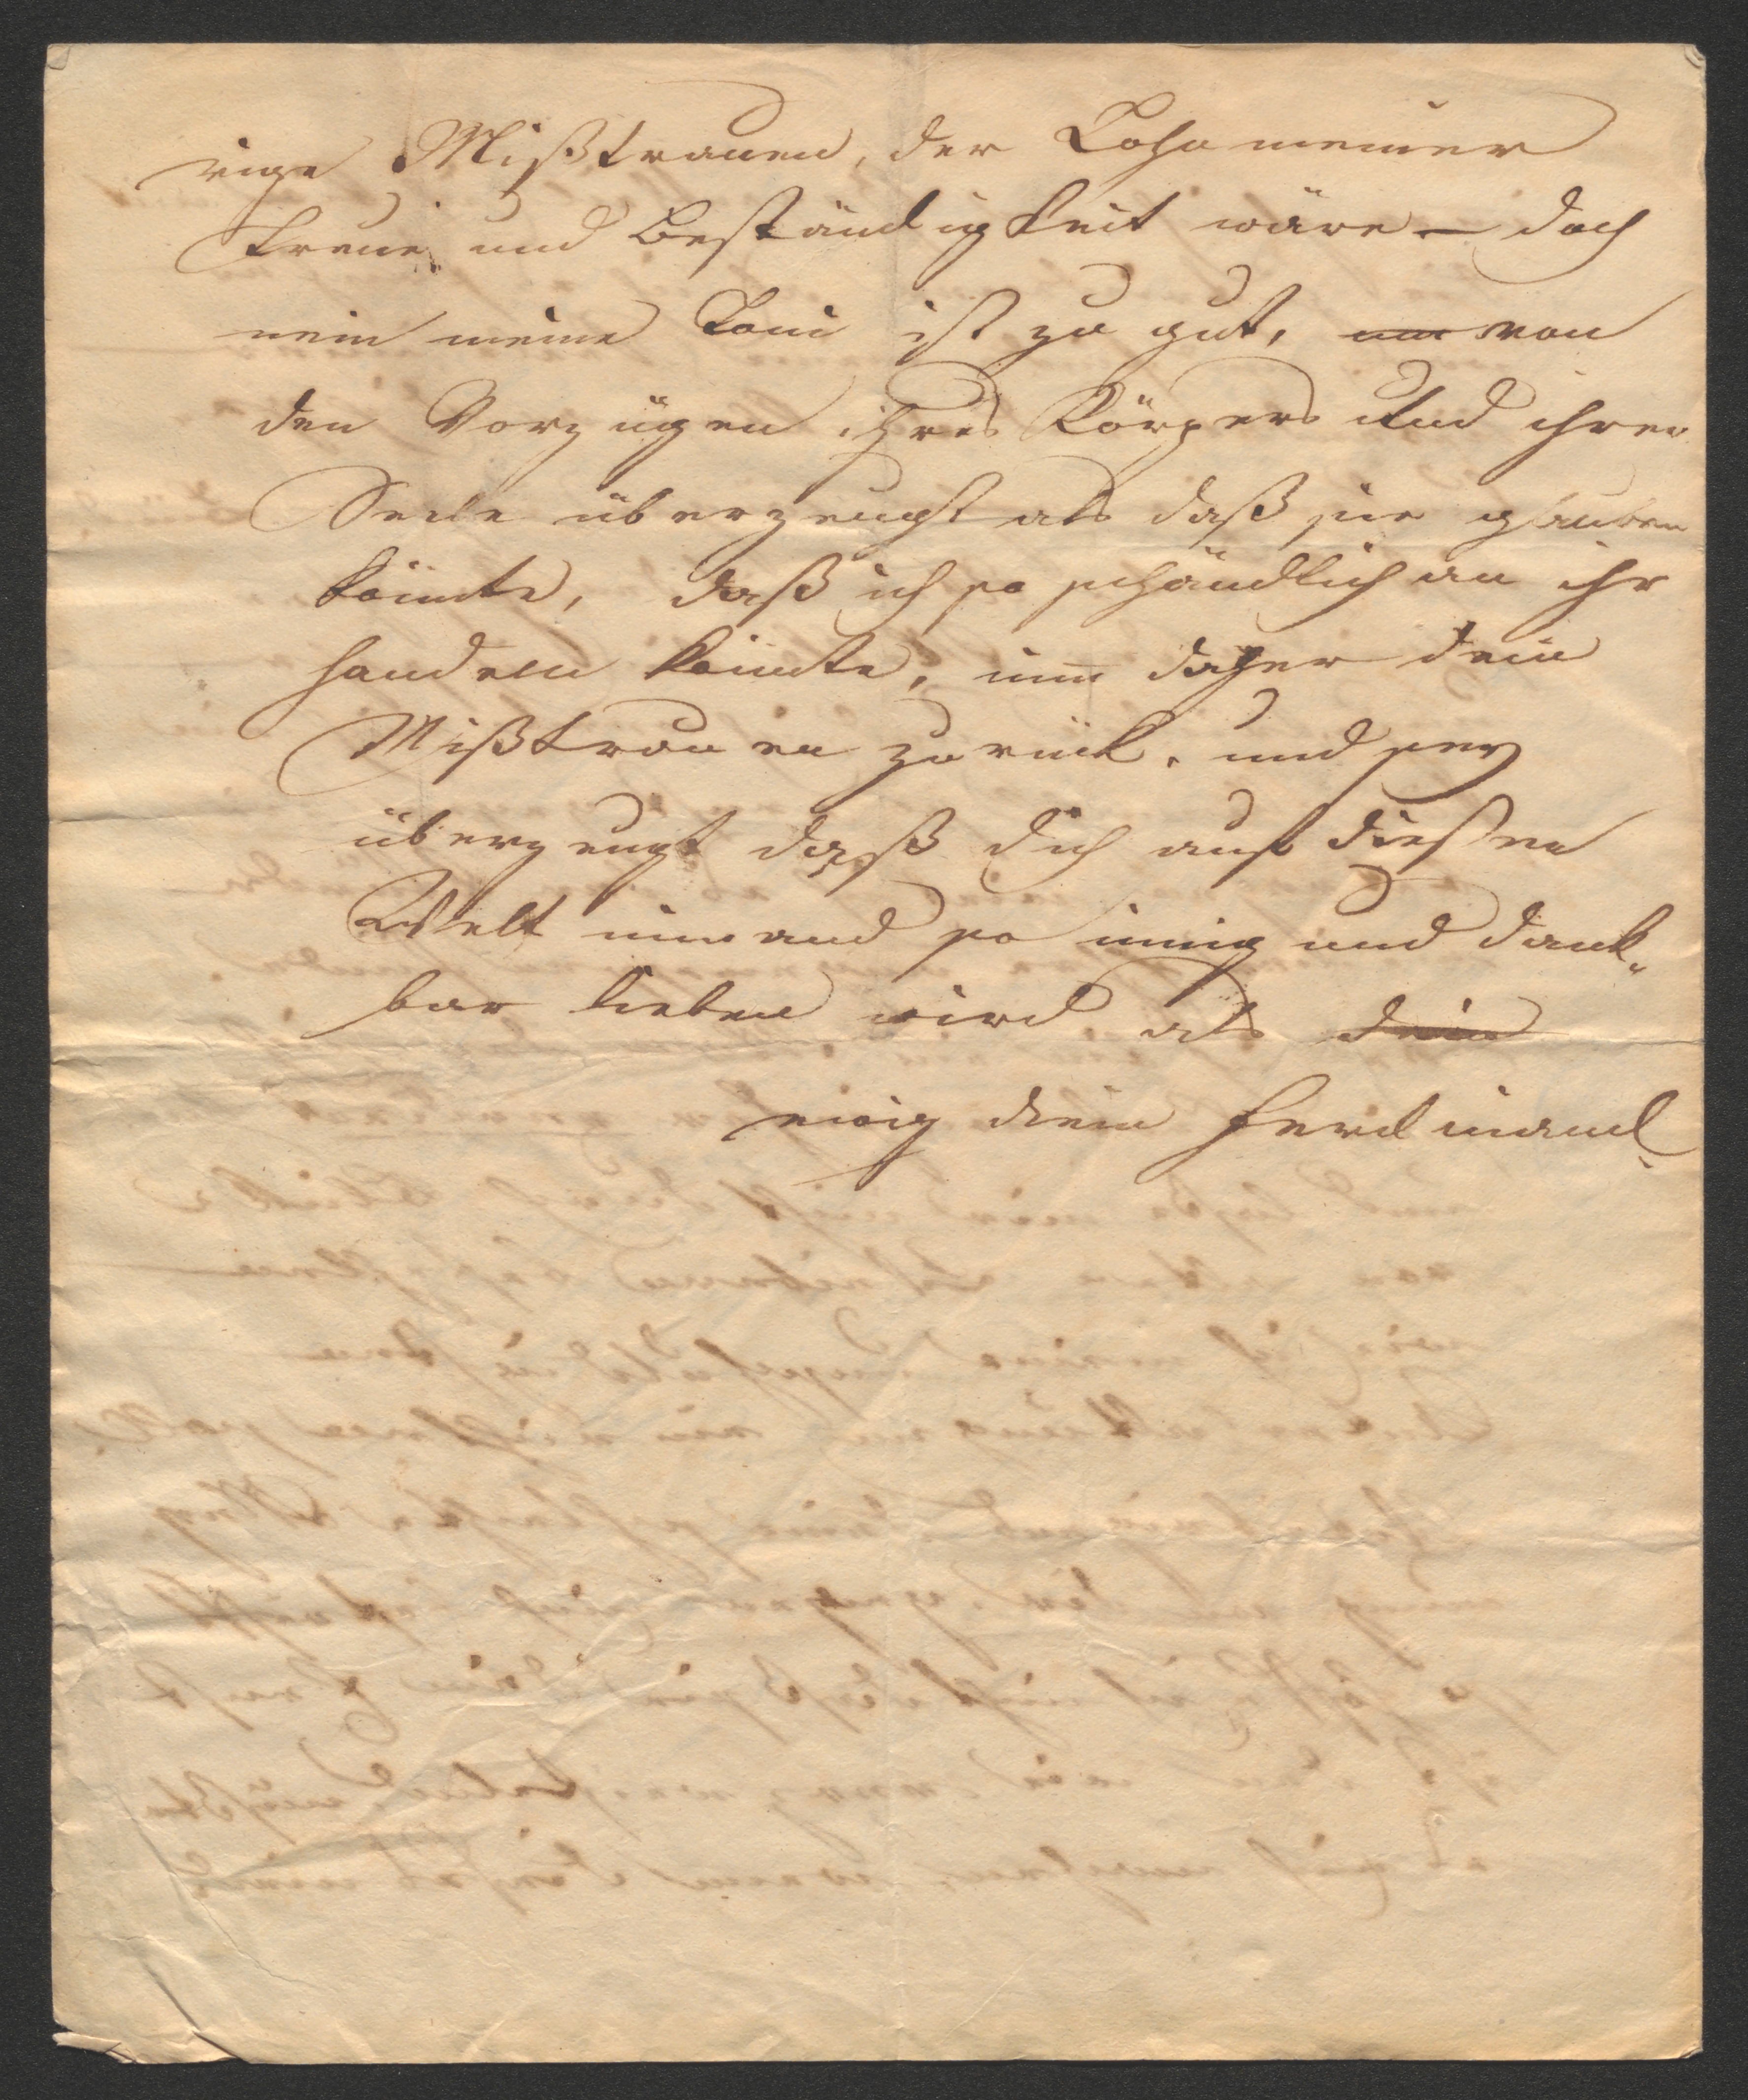 rige Mißtrauen, der Lohn meiner
Treue und Beständigkeit wäre – doch
nein meine Toni ist zu gut, um von
den Vorzügen ihres Körpers und ihrer
Seele überzeugt als daß sie glauben
könnte, daß ich so schändlich an ihr
handeln könnte, nim daher dein
Mißtrauen zurück, und sey
überzeugt daß dich auf dießer
Welt nimand so innig und dank„
bar lieben wird als dein
ewig dein Ferdinand